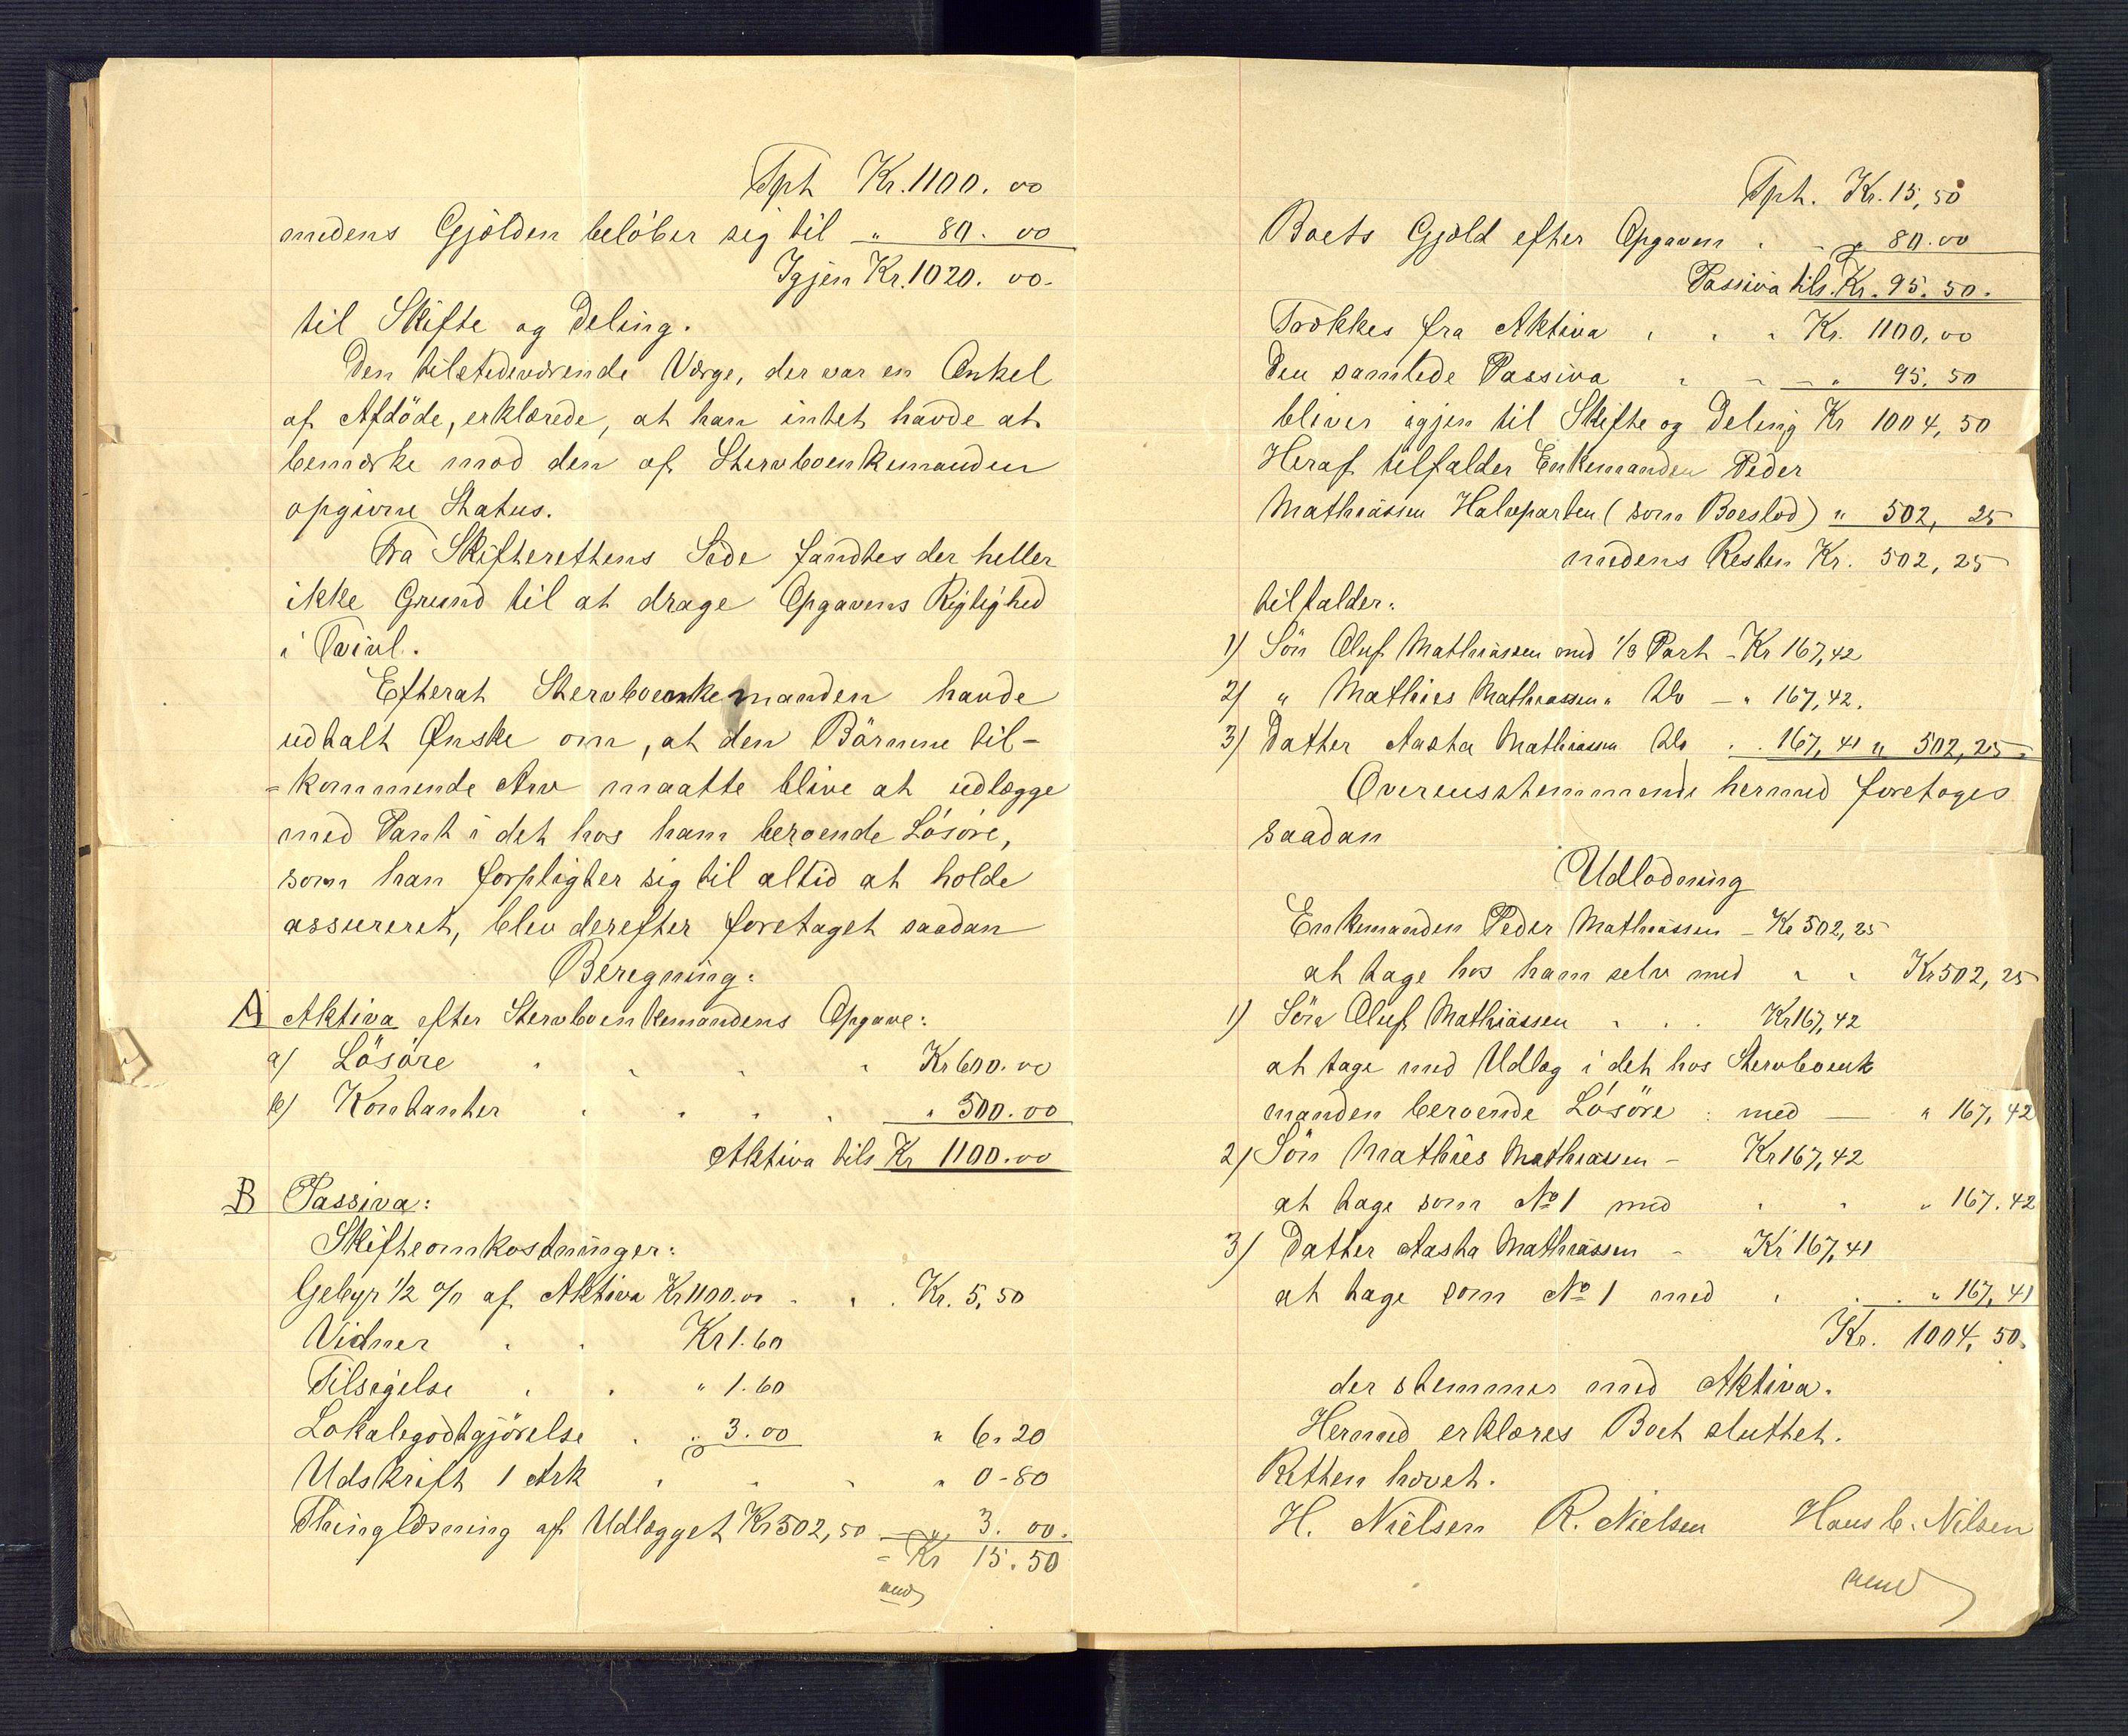 Tph Kr. 1100. 00
medens Gjælden beløber sig til " 80. 00
Igjen Kr. 1020. 00.
til Skifte og Deling.
Den tilstedeværende Værge, der var en Onkel
af Afdöde, erklærede, at han intet havde at
bemærke mod den af Stervboenkemanden
opgivne Status.
Fra Skifterettens Side fandtes der heller
ikke Grund til at drage Opgavens Rigtighed
i Tvivl.
Efterat Stervboenkemanden havde
udtalt Ønske om, at den Börnene til-
=kommende Arv maatte blive at udlægge
med Pant i det hos ham beroende Lösöre,
som han forpligter sig til altid at holde
assureret, blev derefter foretaget saadan
Beregning:
A Aktiva efter Stervboenkemandens Opgave:
a) Lösöre Kr 600. 00
b) Kontanter " 500. 00
Aktiva tils Kr 1100. 00
B Passiva:
Skifteomkostninger:
Gebyr 1/2 % af Aktiva Kr 1100. 00 Kr. 5, 50
Vidner Kr 1. 60
Tilsigelse " 1. 60
Lokalegodtgjörelse " 3. 00 " 6. 20
Udskrift 1 Ark " 0-80
Thinglæsning af Udlægget Kr 502, 50 " 3. 00.
= Kr 15. 50
Tph. Kr. 15, 50
Boets Gjæld efter Opgaven " 80. 00
Passiva tils. Kr. 95. 50.
Trækkes fra Aktiva Kr. 1100, 00
Den samlede Passiva " 95, 50
bliver igjen til Skifte og Deling Kr 1004, 50
Heraf tilfalder Enkemanden Peder
Mathiassen Halvparten (som Boeslod) " 502, 25
medens Resten Kr. 502, 25
tilfalder:
1) Sön Oluf Mathiassen med 1/3 Part - Kr 167,42
2) " Mathies Mathiassen " Do - " 167,42.
3) Datter Aasta Mathiassen Do 167, 41 " 502, 25
Overensstemmende hermed foretoges
saadan
Udlodning
Enkemanden Peder Mathiassen - Kr 502, 25
at tage hos ham selv med Kr 502, 25
1) Sön Oluf Mathiassen Kr 167, 42
at tage med Udlæg i det hos Stervboenke
manden beroende Lösöre : med — " 167, 42
2) Sön Mathies Mathiassen - Kr 167, 42
at tage som No 1 med " 167. 42
3) Datter Aasta Mathiassen - Kr 167, 41
at tage som No 1 med " 167, 41
Kr. 1004, 50.
der stemmer med Aktiva.
Hermed erklæres Boet sluttet.
Retten hævet.
H. Nielsen R. Nielsen Hans C. Nilsen